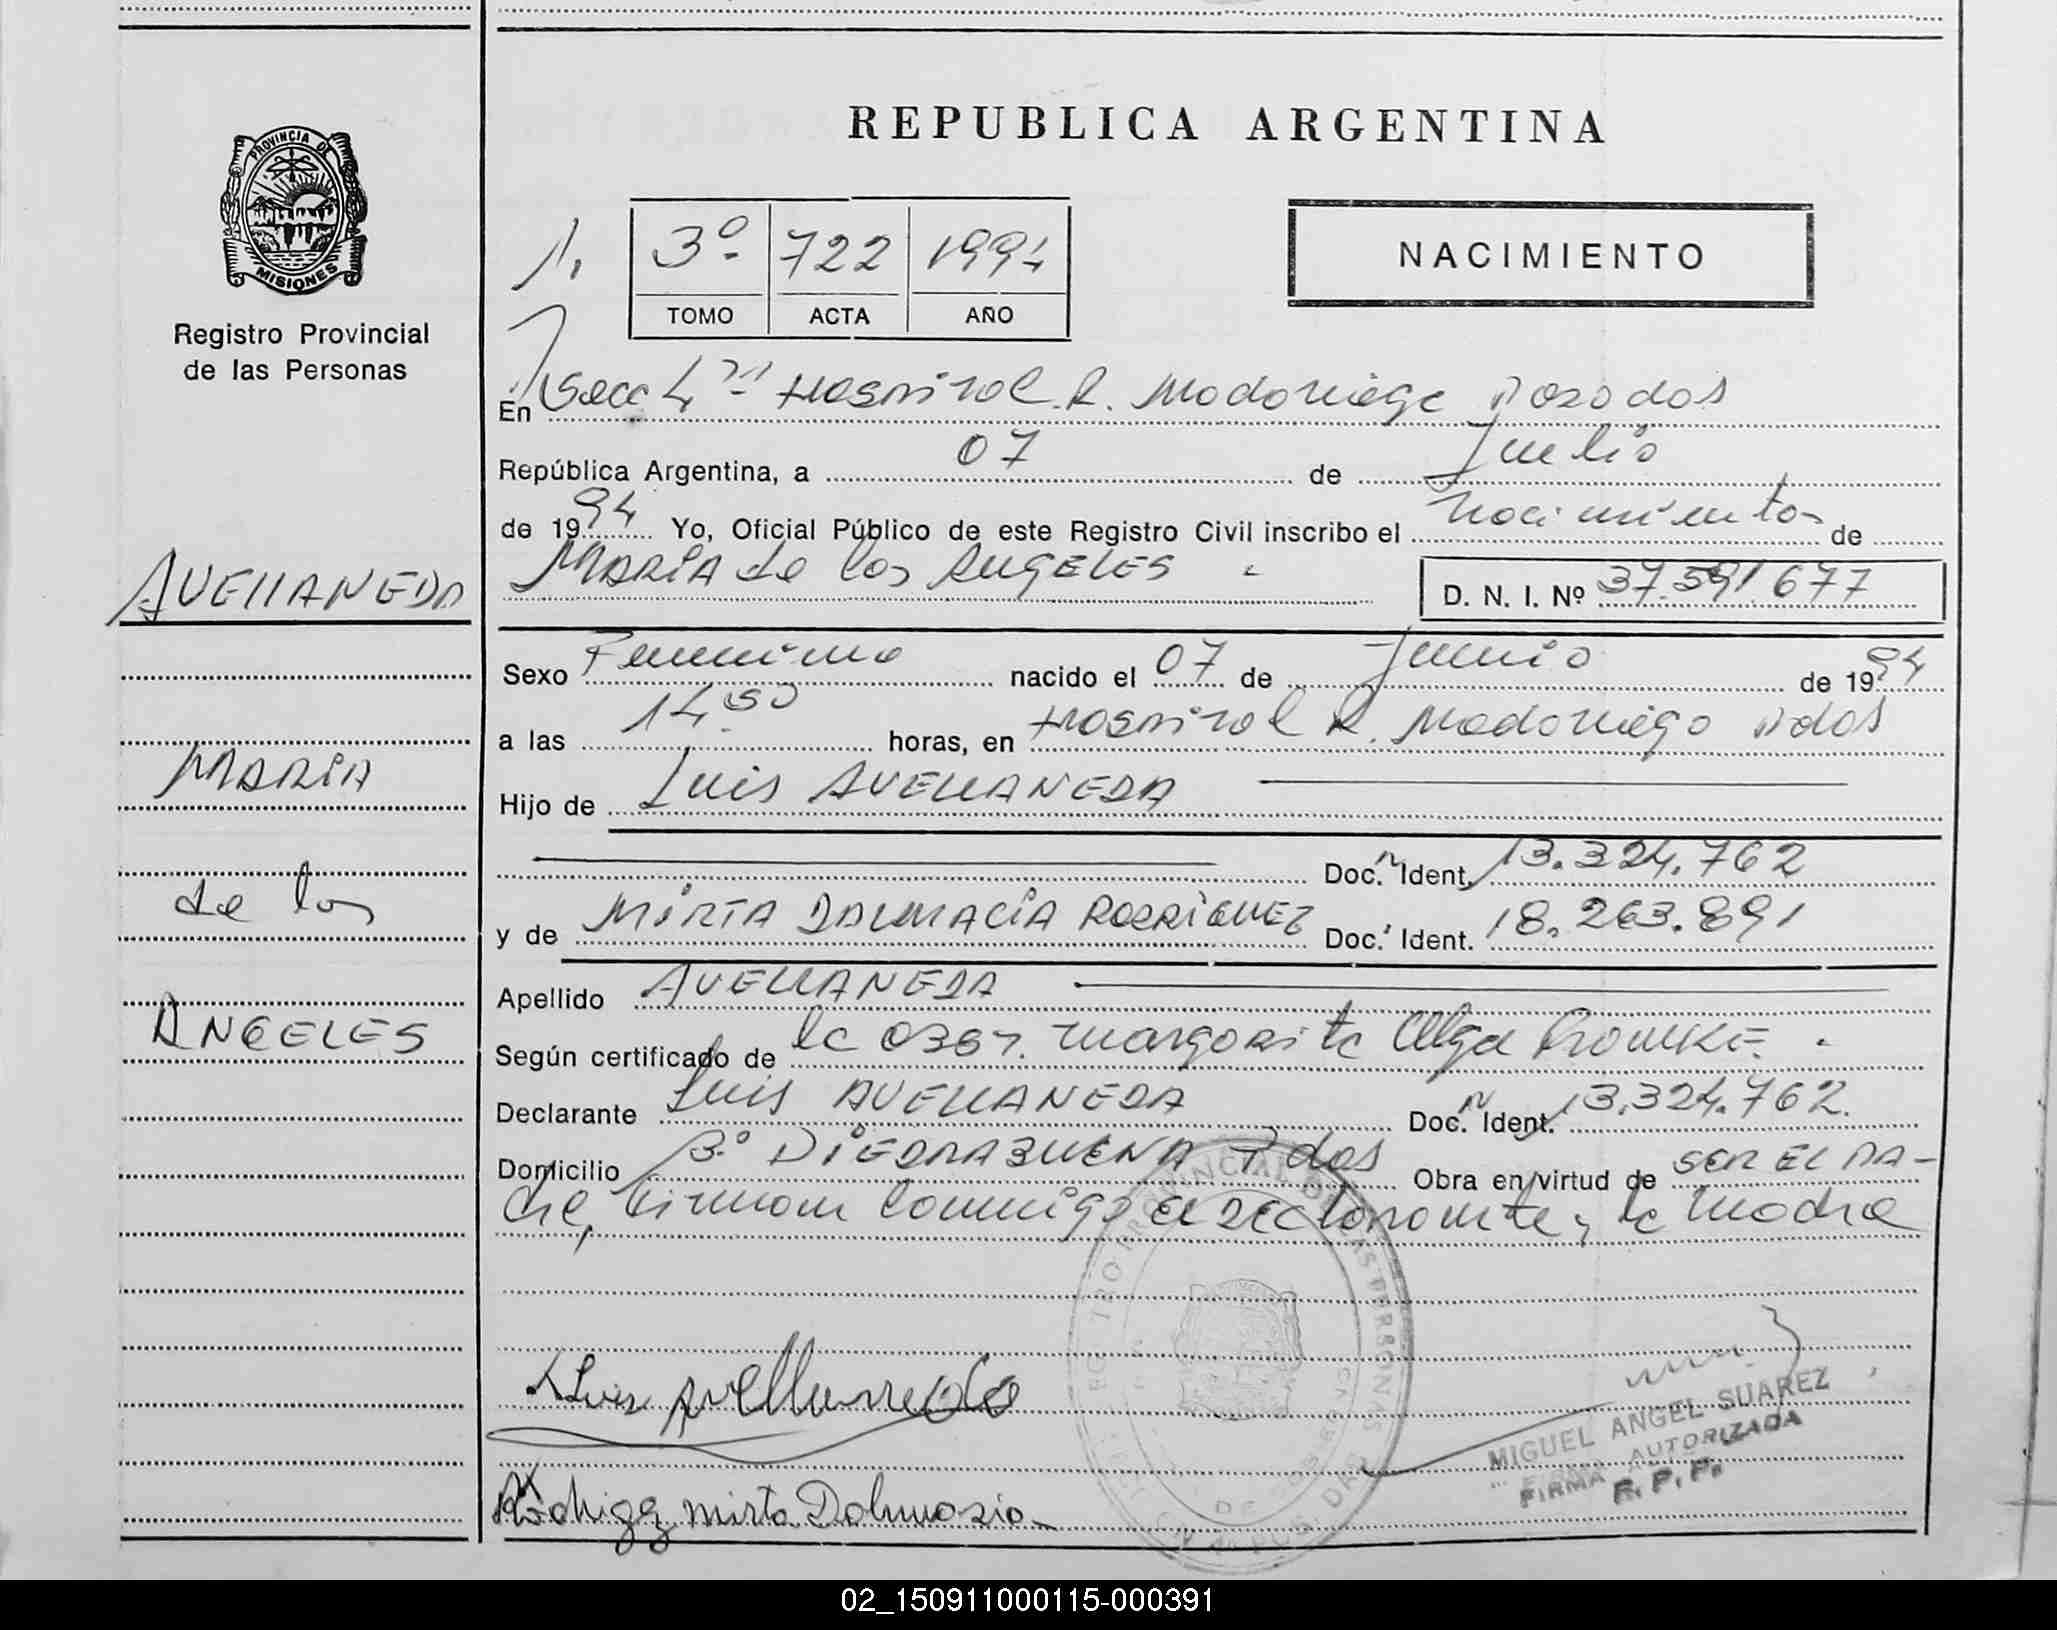 REPUBLICA ARGENTINA
PROVINCIA DE
MISIONES
Registro Provincial
de las Personas
3º 722 1994
TOMO ACTA AÑO
NACIMIENTO
En Secc 4ª Hospital R. Madariaga Posadas
República Argentina, a 07 de Julio
de 1994 Yo, Oficial Público de este Registro Civil inscribo el nacimiento de
MARIA de los ANGELES D. N. I. Nº 37.591.677
AVELLANEDA
MARIA
de los
ANGELES
Sexo Femenino nacido el 07 de Junio de 1994
a las 14,50 horas, en Hospital R. Madariaga Pdas
Hijo de Luis AVELLANEDA
Doc. Ident. 13.324.762
y de MIRTA DALMACIA RODRIGUEZ Doc. Ident. 18.263.891
Apellido AVELLANEDA
Según certificado de la Obst. Margarita Olga
Declarante Luis AVELLANEDA Doc. Ident. 13.324.762.
Domicilio Bº PIEDRABUENA Pdas Obra en virtud de SER EL PA-
dre, firman conmigo el declarante y la madre
Luis Avellaneda
MIGUEL ANGEL SUAREZ
FIRMA AUTORIZADA
R. P. P.
Rodrigez mirta Dalmasia
02_150911000115-000391